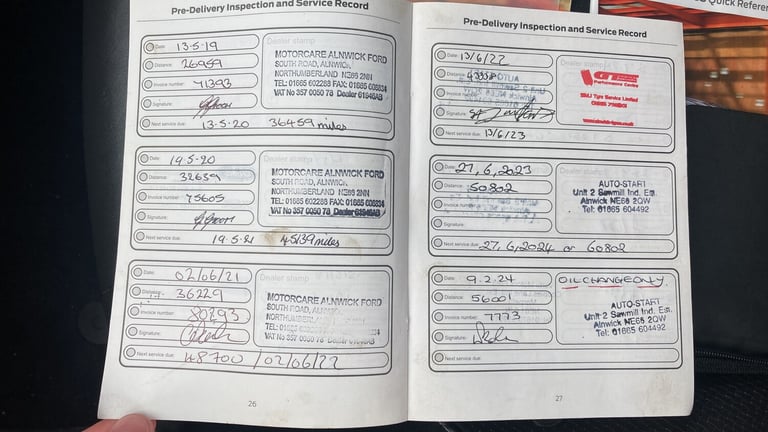 Pre-Delivery Inspection and Service Record
Date: 13-5-19
Distance: 26959
Invoice number: 71393
Signature:
Next service due: 13-5-20 36459 miles
Dealer stamp
MOTORCARE ALNWICK FORD
SOUTH ROAD, ALNWICK,
NORTHUMBERLAND NE66 2NN
TEL: 01665 602283 FAX: 01665 606834
VAT No 357 0050 78 Dealer
Date: 19.5-20
Distance: 32639
Invoice number: 75605
Signature:
Next service due: 19.5-21 45139 miles
Dealer stamp
MOTORCARE ALNWICK FORD
SOUTH ROAD, ALNWICK,
NORTHUMBERLAND NE66 2NN
TEL: 01665 602283 FAX: 01665 606834
VAT No 357 0050 78 Dealer
Date: 02/06/21
Distance: 36229
Invoice number: 80293
Signature:
Next service due: 48700 / 02/06/22
Dealer stamp
MOTORCARE ALNWICK FORD
SOUTH ROAD,
TEL:
VAT No 357 0050 78
26
Pre-Delivery Inspection and Service Record
Date: 13/6/22
Distance:
Invoice number:
Signature:
Next service due: 13/6/23
Dealer stamp
Performance Centre
Tyre Service Limited
Date: 27,6,2023
Distance: 50802
Invoice number:
Signature:
Next service due: 27,6,2024 or 60802
Dealer stamp
AUTO-START
Unit 2 Sawmill Ind. Est.
Alnwick NE66 2QW
Tel: 01665 604492
Date: 9.2.24
Distance: 56001
Invoice number: 7773
Signature:
Next service due:
OIL CHANGE ONLY.
AUTO-START
Unit 2 Sawmill Ind. Est.
Alnwick NE66 2QW
Tel: 01665 604492
27
Quick Refer